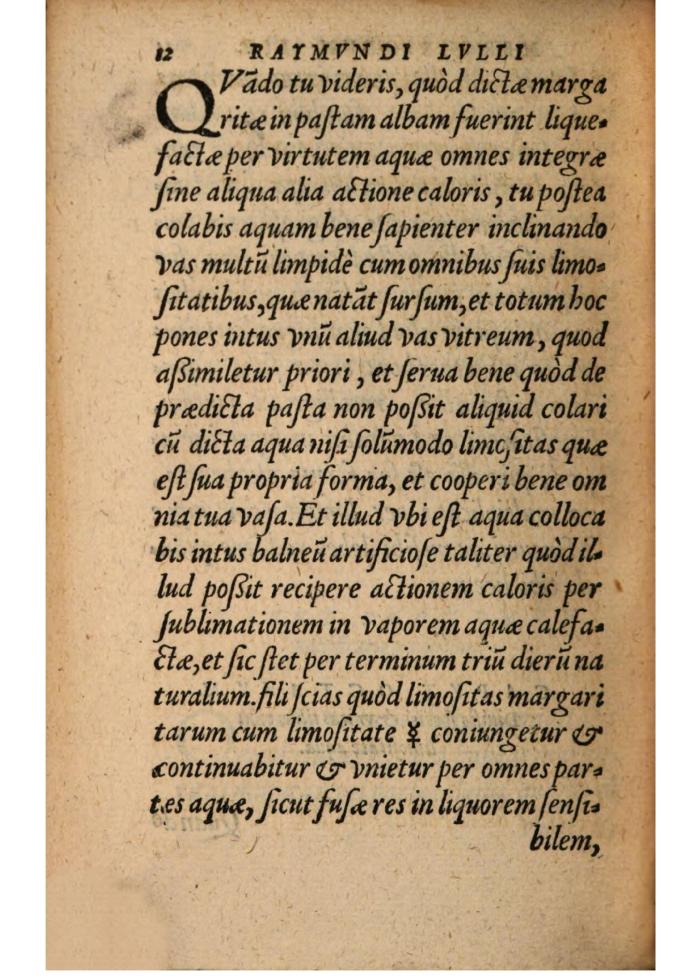 12 RAYMVNDI LVLLI
QVãdo tu videris, quòd dictæ marga
ritæ in paſtam albam fuerint lique-
factæ per virtutem aquæ omnes integræ
ſine aliqua alia actione caloris, tu poſtea
colabis aquam bene ſapienter inclinando
vas multũ limpidè cum omnibus ſuis limo-
ſitatibus, quæ natãt ſurſum, et totum hoc
pones intus vnũ aliud vas vitreum, quod
aßimiletur priori, et ſerua bene quòd de
prædicta paſta non poßit aliquid colari
cũ dicta aqua niſi ſolũmodo limoſitas quæ
eſt ſua propria forma, et cooperi bene om
nia tua vaſa. Et illud vbi eſt aqua colloca
bis intus balneũ artificioſe taliter quòd il-
lud poßit recipere actionem caloris per
ſublimationem in vaporem aquæ calefa-
ctæ, et ſic ſtet per terminum triũ dierũ na
turalium. fili ſcias quòd limoſitas margari
tarum cum limoſitate ☿ coniungetur &
continuabitur & vnietur per omnes par-
tes aquæ, ſicut fuſæ res in liquorem ſenſi-
bilem,